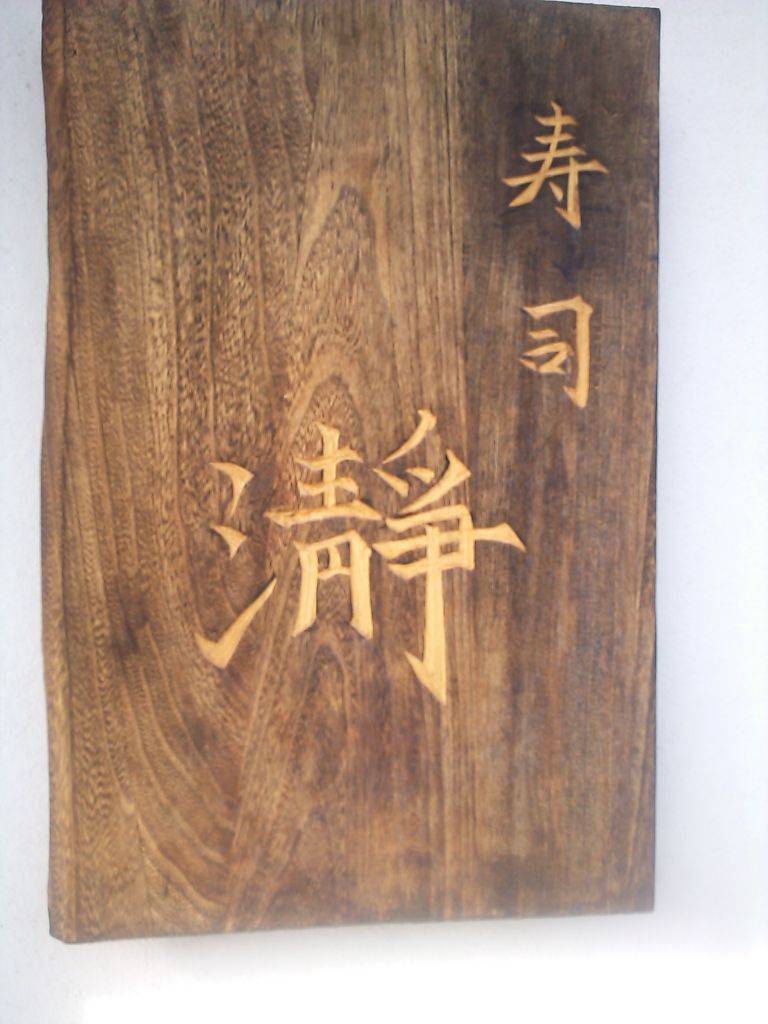 寿司
瀞